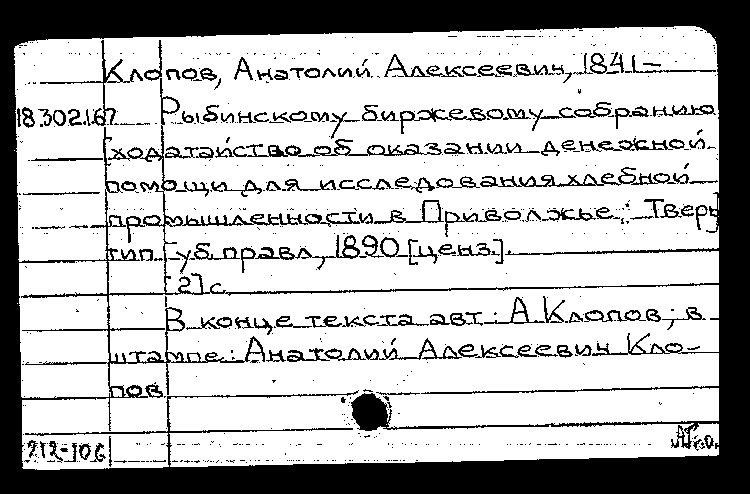 Клопов, Анатолий Алексеевич, 1841–
18.302.167 Рыбинскому биржевому собранию
[ходатайство об оказании денежной
помощи для исследования хлебной
промышленности в Приволжье.: Тверь]
тип. Губ. правл., 1890 [ценз.].
[2] с.
В конце текста авт.: А. Клопов; в
штампе: Анатолий Алексеевич Кло-
пов
212-106